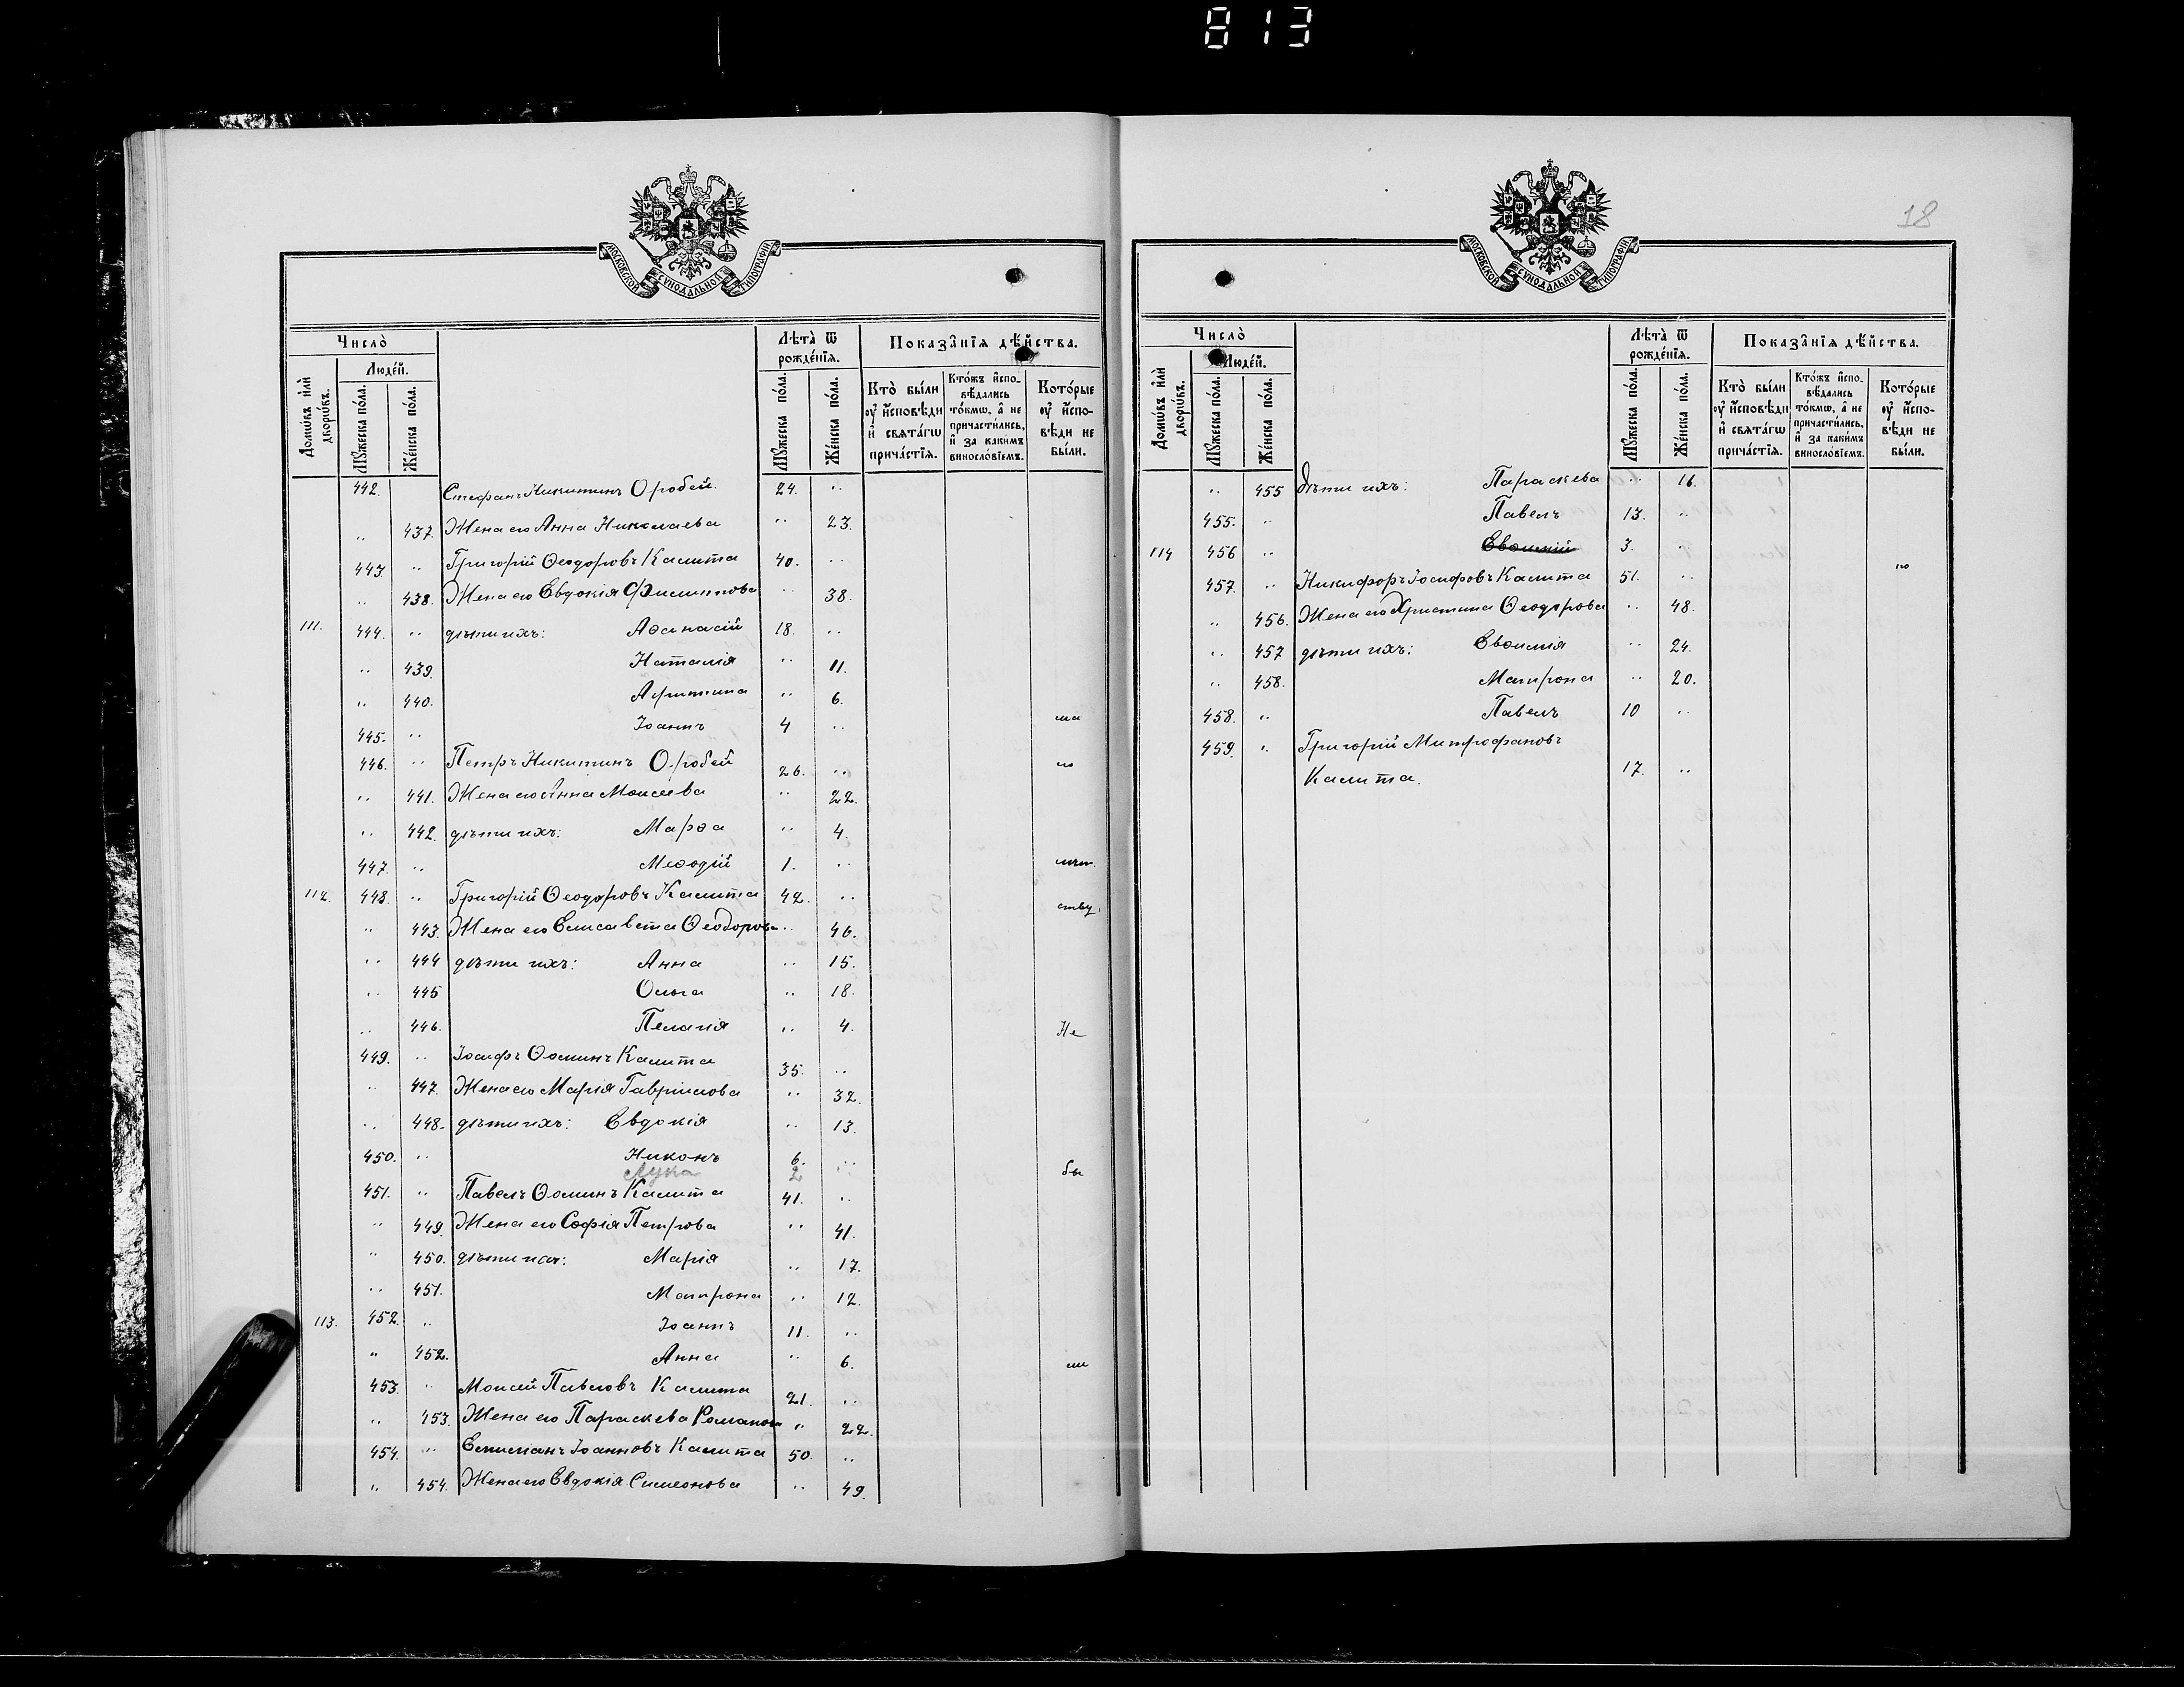 813
МОСКОВСКОЙ СѴНОДАЛЬНОЙ ТИПОГРАФІИ
Число̀
Лѣта̀ ѿ рожде́нїѧ.
Показа̂нїѧ дѣ́йства.
Домѡ́въ и҆лѝ дворѡ́въ.
Люде́й.
Мꙋ́жеска по́ла.
Же́нска по́ла.
Мꙋ́жеска по́ла.
Же́нска по́ла.
Кто̀ бы́ли ᲂу҆ и҆́сповѣди и҆ свята́гѡ прича́стїѧ.
Кто́жъ и҆спо-вѣдались то́кмѡ, а҆ не причасти́лись, и҆ за каки́мъ виносло́вїемъ.
Кото́рые ᲂу҆ и҆́спо-вѣди не бы́ли.
442. Стефанъ Никитинъ Оробей. 24. "
" 437. Жена его Анна Николаева " 23.
443. " Григорій Ѳеодоровъ Калита 40. "
" 438. Жена его Евдокія Филиппова " 38.
111. 444. " дѣти ихъ: Аѳанасій 18. "
" 439. Наталія " 11.
" 440. " 6.
445. " Іоаннъ 4 " ма
446. " Петръ Никитинъ Оробей 26. " ло
" 441. Жена его Анна Моисеева " 22.
" 442. дѣти ихъ: Марѳа " 4.
447. " Меѳодій 1. "
112. 448. " Григорій Ѳеодоровъ Калита 42. " ству.
" 443. Жена его Елисавета Ѳеодорова " 46.
" 444 дѣти ихъ: Анна " 15.
" 445 Ольга " 18.
" 446. Пелагія " 4. Не
449. " Іосифъ Ѳоминъ Калита 35. "
" 447. Жена его Марія Гавріилова " 32.
" 448. дѣти ихъ: Евдокія " 13.
450. " Никонъ 6. "
Лука 2 бы
451. " Павелъ Ѳоминъ Калита 41. "
" 449. Жена его Софія Петрова " 41.
" 450. дѣти ихъ: Марія " 17.
" 451. Матрона " 12.
113. 452. " Іоаннъ 11. "
" 452. Анна " 6. ли
453. " Моисей Павловъ Калита 21. "
" 453. Жена его Параскева Романова " 22.
454. " Емиліанъ Іоанновъ Калита 50. "
" 454. Жена его Евдокія Симеонова " 49.
18
МОСКОВСКОЙ СѴНОДАЛЬНОЙ ТИПОГРАФІИ
Число̀
Лѣта̀ ѿ рожде́нїѧ.
Показа̂нїѧ дѣ́йства.
Домѡ́въ и҆лѝ дворѡ́въ.
Люде́й.
Мꙋ́жеска по́ла.
Же́нска по́ла.
Мꙋ́жеска по́ла.
Же́нска по́ла.
Кто̀ бы́ли ᲂу҆ и҆́сповѣди и҆ свята́гѡ прича́стїѧ.
Кто́жъ и҆спо-вѣдались то́кмѡ, а҆ не причасти́лись, и҆ за каки́мъ виносло́вїемъ.
Кото́рые ᲂу҆ и҆́спо-вѣди не бы́ли.
" 455 дѣти ихъ: Параскева " 16.
455. " Павелъ 13. "
114 456 " Евѳимій 3. "
457. " Никифоръ Іосифовъ Калита 51. "
" 456. Жена его Христина Ѳеодорова " 48.
" 457 дѣти ихъ: Евѳимія " 24.
" 458. Матрона " 20.
458. " Павелъ 10 "
459. " Григорій Митрофановъ
Калита. 17. "